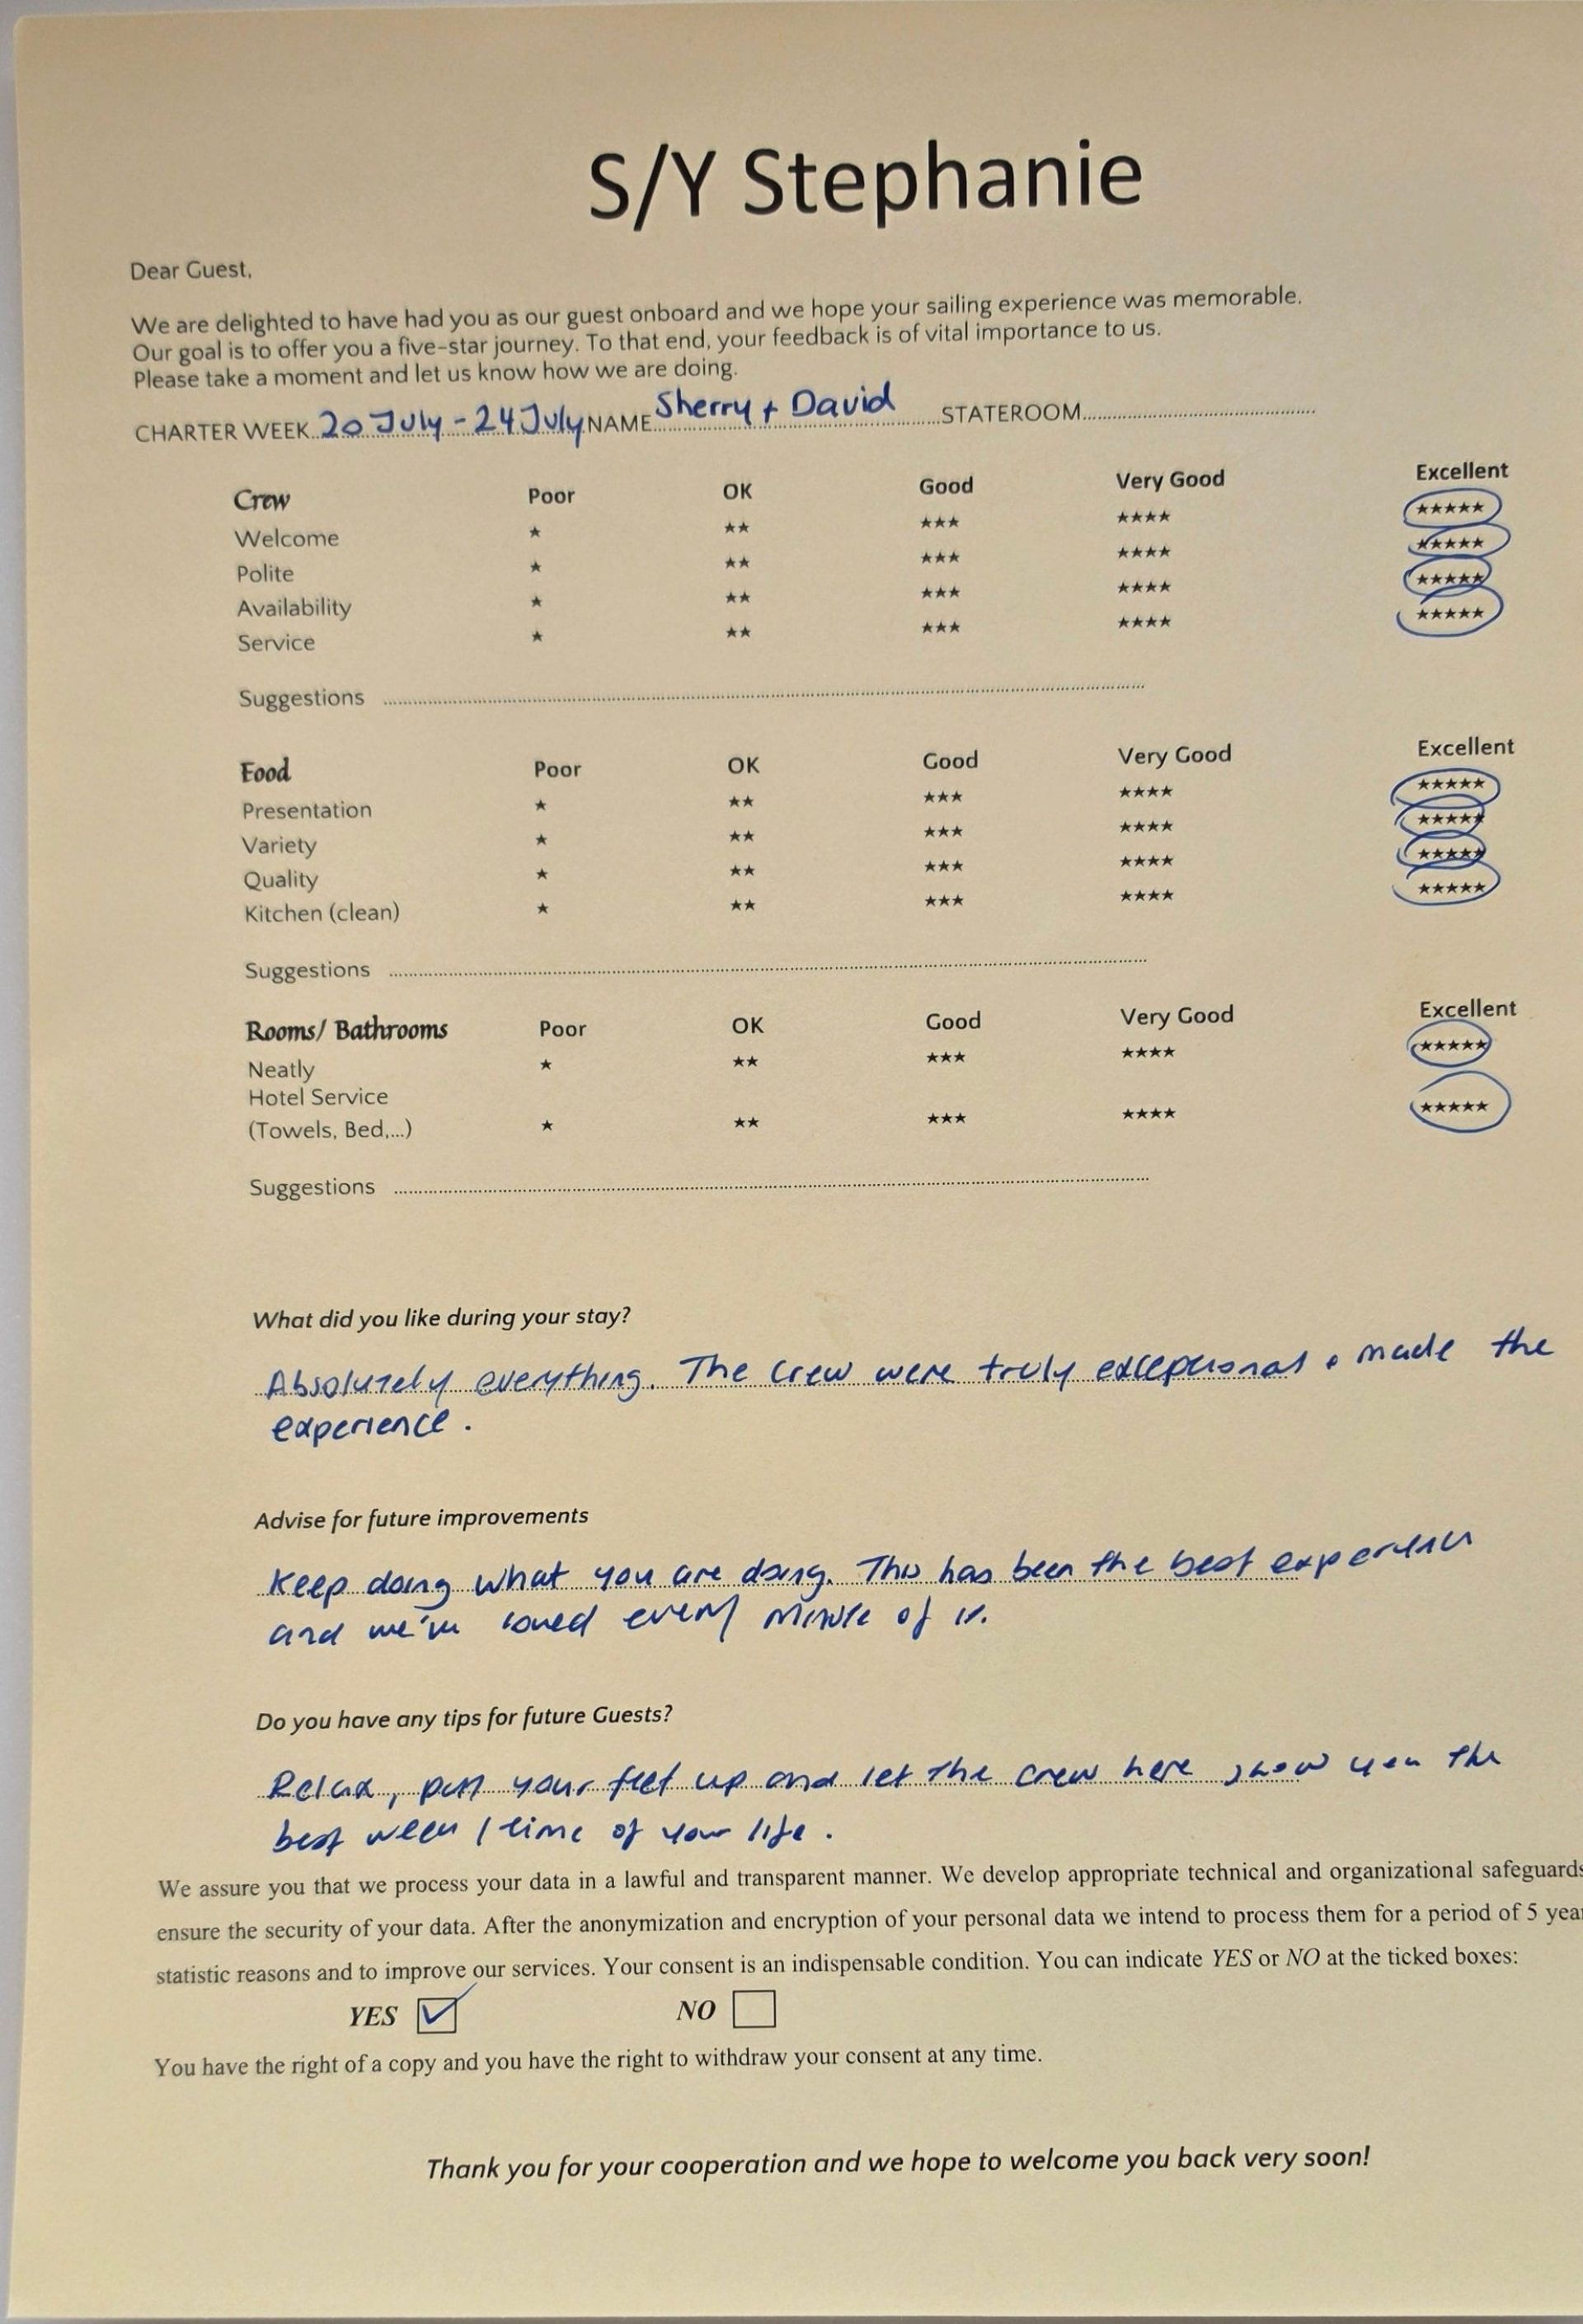 S/Y Stephanie
Dear Guest,
We are delighted to have had you as our guest onboard and we hope your sailing experience was memorable.
Our goal is to offer you a five-star journey. To that end, your feedback is of vital importance to us.
Please take a moment and let us know how we are doing.
CHARTER WEEK 20 July - 24 July NAME Sherry + David STATEROOM
Crew Poor OK Good Very Good Excellent
Welcome ★ ★★ ★★★ ★★★★ ★★★★★
Polite ★ ★★ ★★★ ★★★★ ★★★★★
Availability ★ ★★ ★★★ ★★★★ ★★★★★
Service ★ ★★ ★★★ ★★★★ ★★★★★
Suggestions
Food Poor OK Good Very Good Excellent
Presentation ★ ★★ ★★★ ★★★★ ★★★★★
Variety ★ ★★ ★★★ ★★★★ ★★★★★
Quality ★ ★★ ★★★ ★★★★ ★★★★★
Kitchen (clean) ★ ★★ ★★★ ★★★★ ★★★★★
Suggestions
Rooms/ Bathrooms Poor OK Good Very Good Excellent
Neatly ★ ★★ ★★★ ★★★★ ★★★★★
Hotel Service
(Towels, Bed,...) ★ ★★ ★★★ ★★★★ ★★★★★
Suggestions
What did you like during your stay?
Absolutely everything. The crew were truly exceptional + made the
experience.
Advise for future improvements
Keep doing what you are doing. This has been the best experience
and we've loved every minute of it.
Do you have any tips for future Guests?
Relax, put your feet up and let the crew here show you the
best week / time of your life.
We assure you that we process your data in a lawful and transparent manner. We develop appropriate technical and organizational safeguards
ensure the security of your data. After the anonymization and encryption of your personal data we intend to process them for a period of 5
statistic reasons and to improve our services. Your consent is an indispensable condition. You can indicate YES or NO at the ticked boxes:
YES ☑ NO ☐
You have the right of a copy and you have the right to withdraw your consent at any time.
Thank you for your cooperation and we hope to welcome you back very soon!